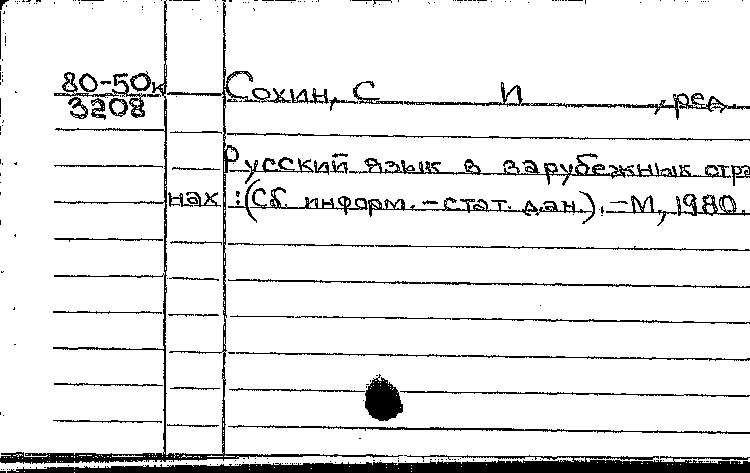 80-50к Сохин, С И , ред.
3208
Русский язык в зарубежных стра
нах :(Сб. информ.-стат. дан.). -М, 1980.